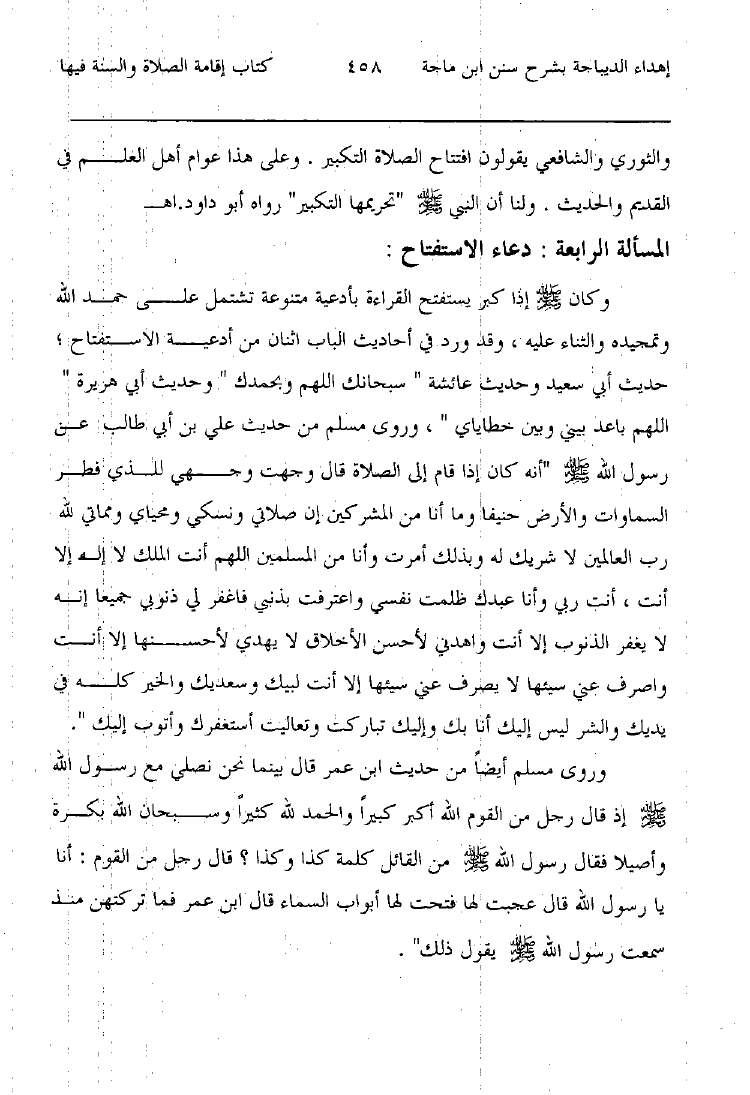 إهداء الديباجة بشرح سنن ابن ماجة ٤٥٨ كتاب إقامة الصلاة والسنة فيها
والثوري والشافعي يقولون افتتاح الصلاة التكبير . وعلى هذا عوام أهل العلم في
القديم والحديث . ولنا أن النبي ﷺ "تحريمها التكبير" رواه أبو داود.اهـ
المسألة الرابعة : دعاء الاستفتاح :
وكان ﷺ إذا كبر يستفتح القراءة بأدعية متنوعة تشتمل على حمد الله
وتمجيده والثناء عليه ، وقد ورد في أحاديث الباب اثنان من أدعية الاستفتاح ؛
حديث أبي سعيد وحديث عائشة " سبحانك اللهم وبحمدك " وحديث أبي هريرة "
اللهم باعد بيني وبين خطاياي " ، وروى مسلم من حديث علي بن أبي طالب عن
رسول الله ﷺ "أنه كان إذا قام إلى الصلاة قال وجهت وجهي للذي فطر
السماوات والأرض حنيفا وما أنا من المشركين إن صلاتي ونسكي ومحياي ومماتي لله
رب العالمين لا شريك له وبذلك أمرت وأنا من المسلمين اللهم أنت الملك لا إله إلا
أنت ، أنت ربي وأنا عبدك ظلمت نفسي واعترفت بذنبي فاغفر لي ذنوبي جميعا إنه
لا يغفر الذنوب إلا أنت واهدني لأحسن الأخلاق لا يهدي لأحسنها إلا أنت
واصرف عني سيئها لا يصرف عني سيئها إلا أنت لبيك وسعديك والخير كله في
يديك والشر ليس إليك أنا بك وإليك تباركت وتعاليت أستغفرك وأتوب إليك ".
وروى مسلم أيضاً من حديث ابن عمر قال بينما نحن نصلي مع رسول الله
ﷺ إذ قال رجل من القوم الله أكبر كبيراً والحمد لله كثيراً وسبحان الله بكرة
وأصيلا فقال رسول الله ﷺ من القائل كلمة كذا وكذا ؟ قال رجل من القوم : أنا
يا رسول الله قال عجبت لها فتحت لها أبواب السماء قال ابن عمر فما تركتهن منذ
سمعت رسول الله ﷺ يقول ذلك" .